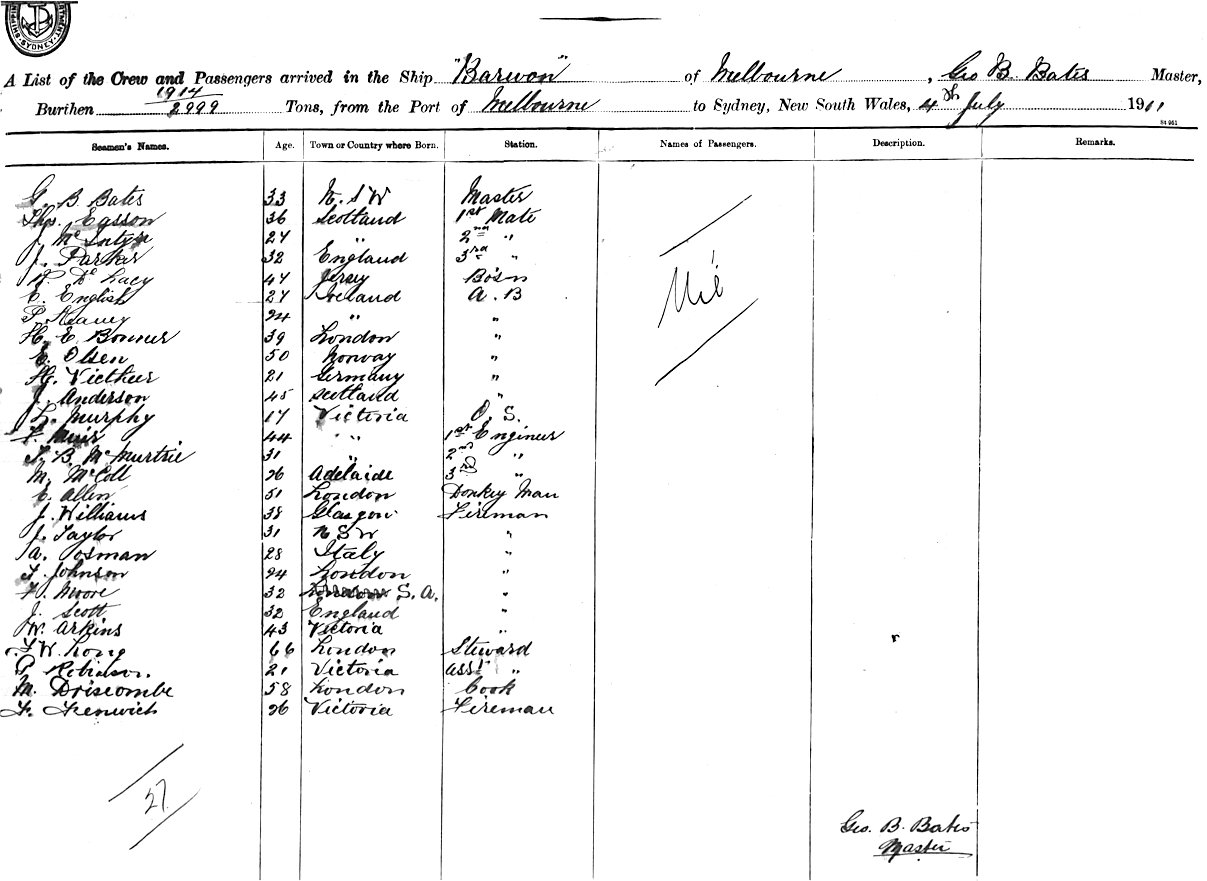 SHIPPING
SYDNEY
A List of the Crew and Passengers arrived in the Ship "Barwon" of Melbourne, Geo B. Bates Master,
Burthen 1914/2999 Tons, from the Port of Melbourne to Sydney, New South Wales, 4th July 1911
Seamen's Names. Age. Town or Country where Born. Station. Names of Passengers. Description. Remarks.
G. B. Bates 33 N. S W Master
Thos. Easson 36 Scotland 1st Mate
J. McIntyre 27 " 2nd "
J. Parker 32 England 3rd "
De Lacy 47 Jersey Bosn
E. English 27 Ireland A. B
P. Heaney 24 " "
H. E. Bonner 39 London "
E. Olsen 50 Norway "
H. Vietheer 21 Germany "
J. Anderson 45 Scotland "
L. Murphy 17 Victoria O. S.
Muir 44 " " 1st Engineer
B. McMurtrie 31 " 2nd "
M. McColl 26 Adelaide 3rd "
E. Allen 51 London Donkey Man
J. Williams 38 Glasgow Fireman
J. Taylor 31 N S W "
A. Posman 28 Italy "
F. Johnson 24 London "
F. Moore 32 S. A. "
J. Scott 32 England "
W. Arkins 43 Victoria "
F. W. Long 66 London Steward
P. Robinson. 21 Victoria Asst "
M. Driscombe 58 London Cook
F. Fenwick 26 Victoria Fireman
Nil
27
Geo. B. Bates
Master